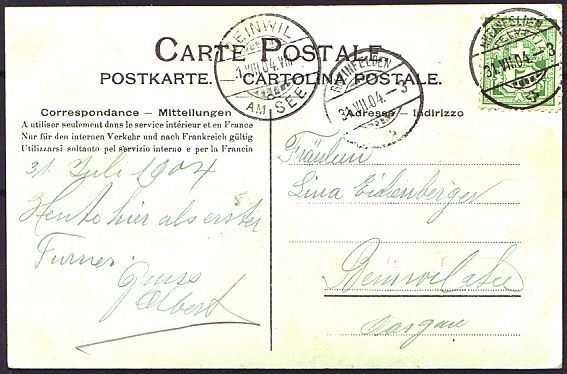 CARTE POSTALE.
POSTKARTE. — CARTOLINA POSTALE.
REINWIL
1.VIII.04.VII
AM SEE
RHEINFELDEN
31.VII.04. 3
RHEINFELDEN
31.VII.04. 3
HELVETIA
Correspondance — Mitteilungen
A utiliser seulement dans le service intérieur et en France
Nur für den internen Verkehr und nach Frankreich gültig
Utilizzarsi soltanto pel servizio interno e per la Francia
Adresse — Indirizzo
31. Juli 1904
Heute hier als erster
Turner.
Gruss
Albert
Fräulein
Lina Eichenberger
Beinwil a/See
Aargau